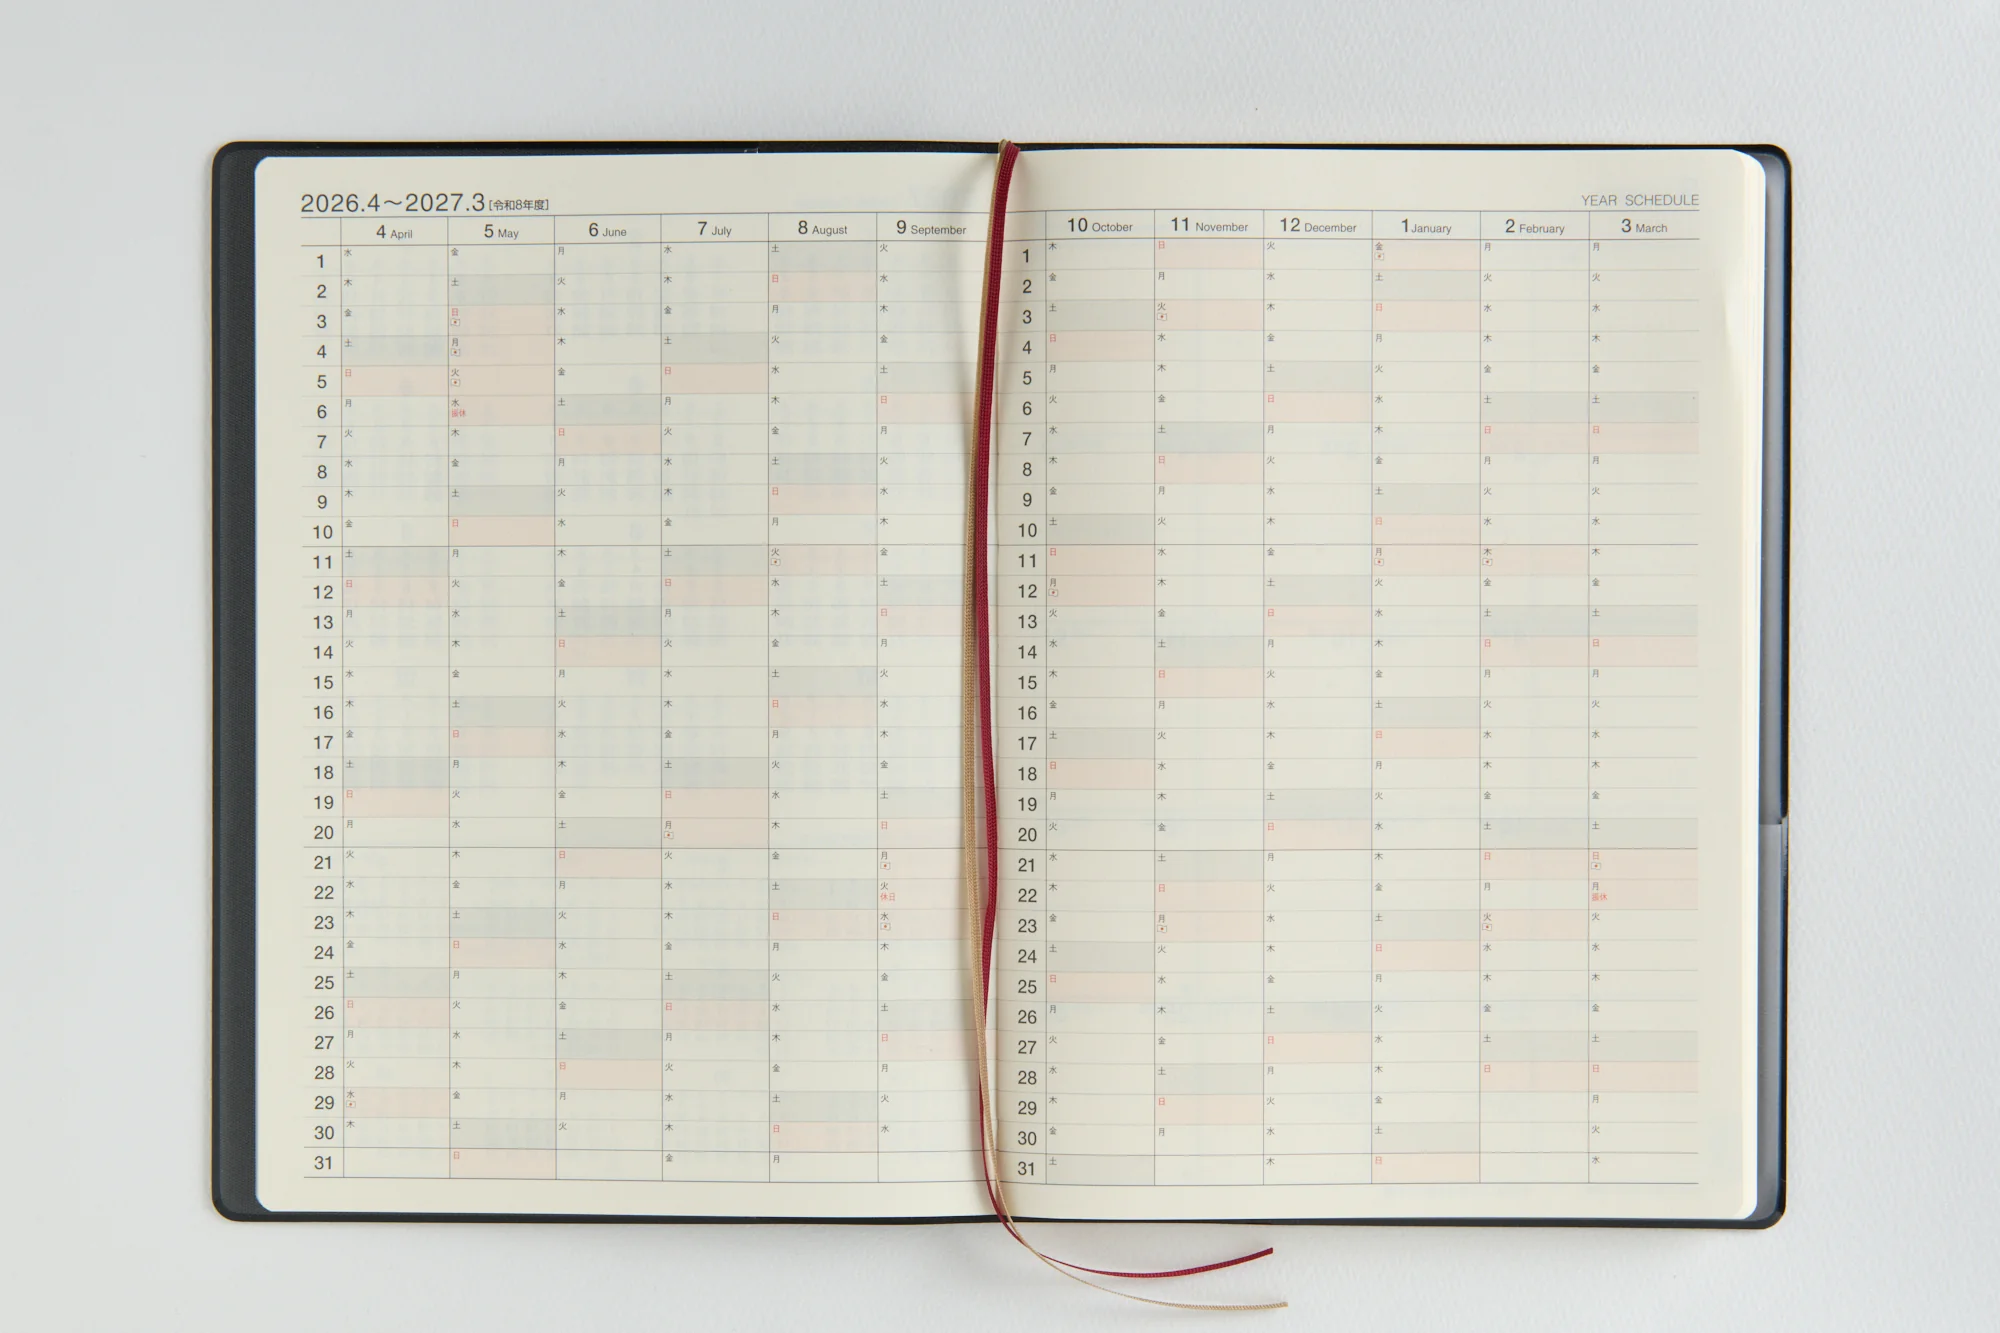 2026.4～2027.3 [令和8年度]
4 April 5 May 6 June 7 July 8 August 9 September
1 水 金 月 水 土 火
2 木 土 火 木 日 水
3 金 日 水 金 月 木
4 土 月 木 土 火 金
5 日 火 金 日 水 土
6 月 水 土 月 木 日
振休
7 火 木 日 火 金 月
8 水 金 月 水 土 火
9 木 土 火 木 日 水
10 金 日 水 金 月 木
11 土 月 木 土 火 金
12 日 火 金 日 水 土
13 月 水 土 月 木 日
14 火 木 日 火 金 月
15 水 金 月 水 土 火
16 木 土 火 木 日 水
17 金 日 水 金 月 木
18 土 月 木 土 火 金
19 日 火 金 日 水 土
20 月 水 土 月 木 日
21 火 木 日 火 金 月
22 水 金 月 水 土 火
休日
23 木 土 火 木 日 水
24 金 日 水 金 月 木
25 土 月 木 土 火 金
26 日 火 金 日 水 土
27 月 水 土 月 木 日
28 火 木 日 火 金 月
29 水 金 月 水 土 火
30 木 土 火 木 日 水
31 日 金 月
YEAR SCHEDULE
10 October 11 November 12 December 1 January 2 February 3 March
1 木 日 火 金 月 月
2 金 月 水 土 火 火
3 土 火 木 日 水 水
4 日 水 金 月 木 木
5 月 木 土 火 金 金
6 火 金 日 水 土 土
7 水 土 月 木 日 日
8 木 日 火 金 月 月
9 金 月 水 土 火 火
10 土 火 木 日 水 水
11 日 水 金 月 木 木
12 月 木 土 火 金 金
13 火 金 日 水 土 土
14 水 土 月 木 日 日
15 木 日 火 金 月 月
16 金 月 水 土 火 火
17 土 火 木 日 水 水
18 日 水 金 月 木 木
19 月 木 土 火 金 金
20 火 金 日 水 土 土
21 水 土 月 木 日 日
22 木 日 火 金 月 月
振休
23 金 月 水 土 火 火
24 土 火 木 日 水 水
25 日 水 金 月 木 木
26 月 木 土 火 金 金
27 火 金 日 水 土 土
28 水 土 月 木 日 日
29 木 日 火 金 月
30 金 月 水 土 火
31 土 木 日 水